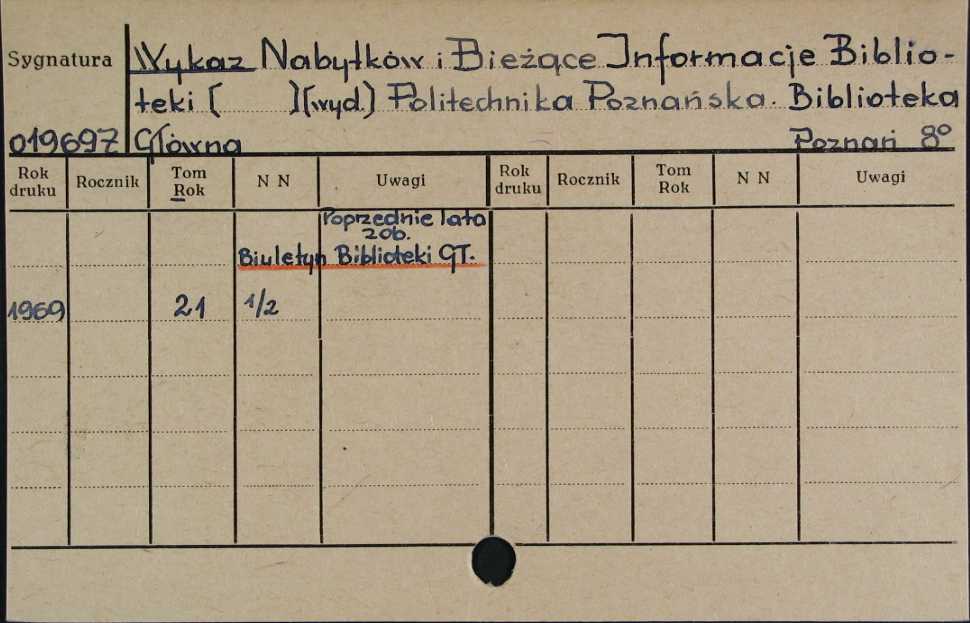 Sygnatura
Wykaz Nabytków i Bieżące Informacje Biblio-
teki [ ] [wyd.] Politechnika Poznańska. Biblioteka
019697 Główna Poznań 8°
Rok druku Rocznik Tom Rok N N Uwagi Rok druku Rocznik Tom Rok N N Uwagi
Poprzednie lata
zob.
Biuletyn Biblioteki GT.
1969 21 1/2